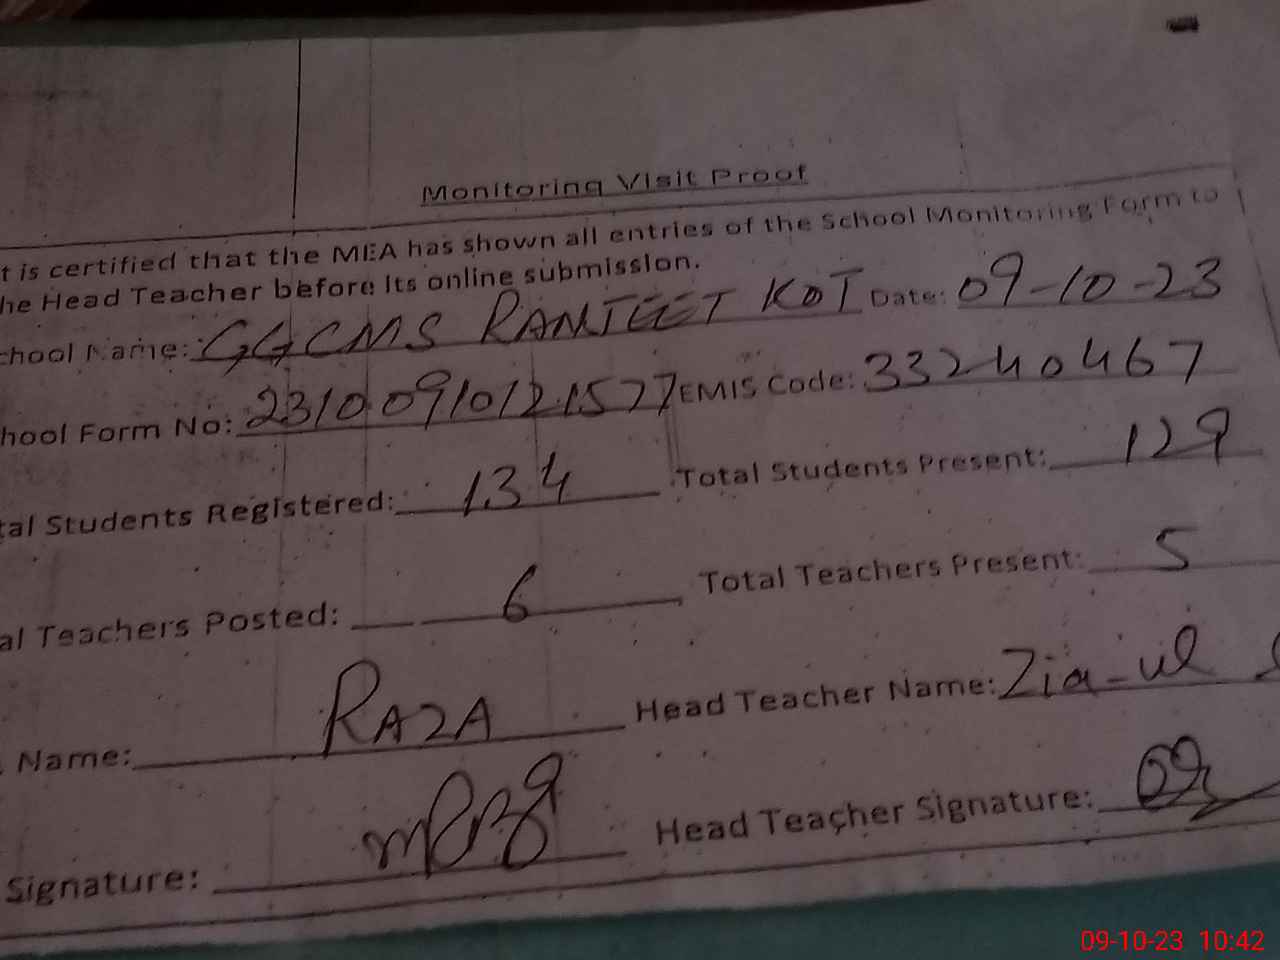 Monitoring Visit Proof
t is certified that the MEA has shown all entries of the School Monitoring Form to
he Head Teacher before its online submission.
chool Name: GGCMS RANJEET KOT Date: 09-10-23
hool Form No: 23100910121577 EMIS Code: 33240467
tal Students Registered: 134 Total Students Present: 129
al Teachers Posted: 6 Total Teachers Present: 5
Name: RAZA Head Teacher Name: Zia-ul
Signature: Head Teacher Signature:
09-10-23 10:42